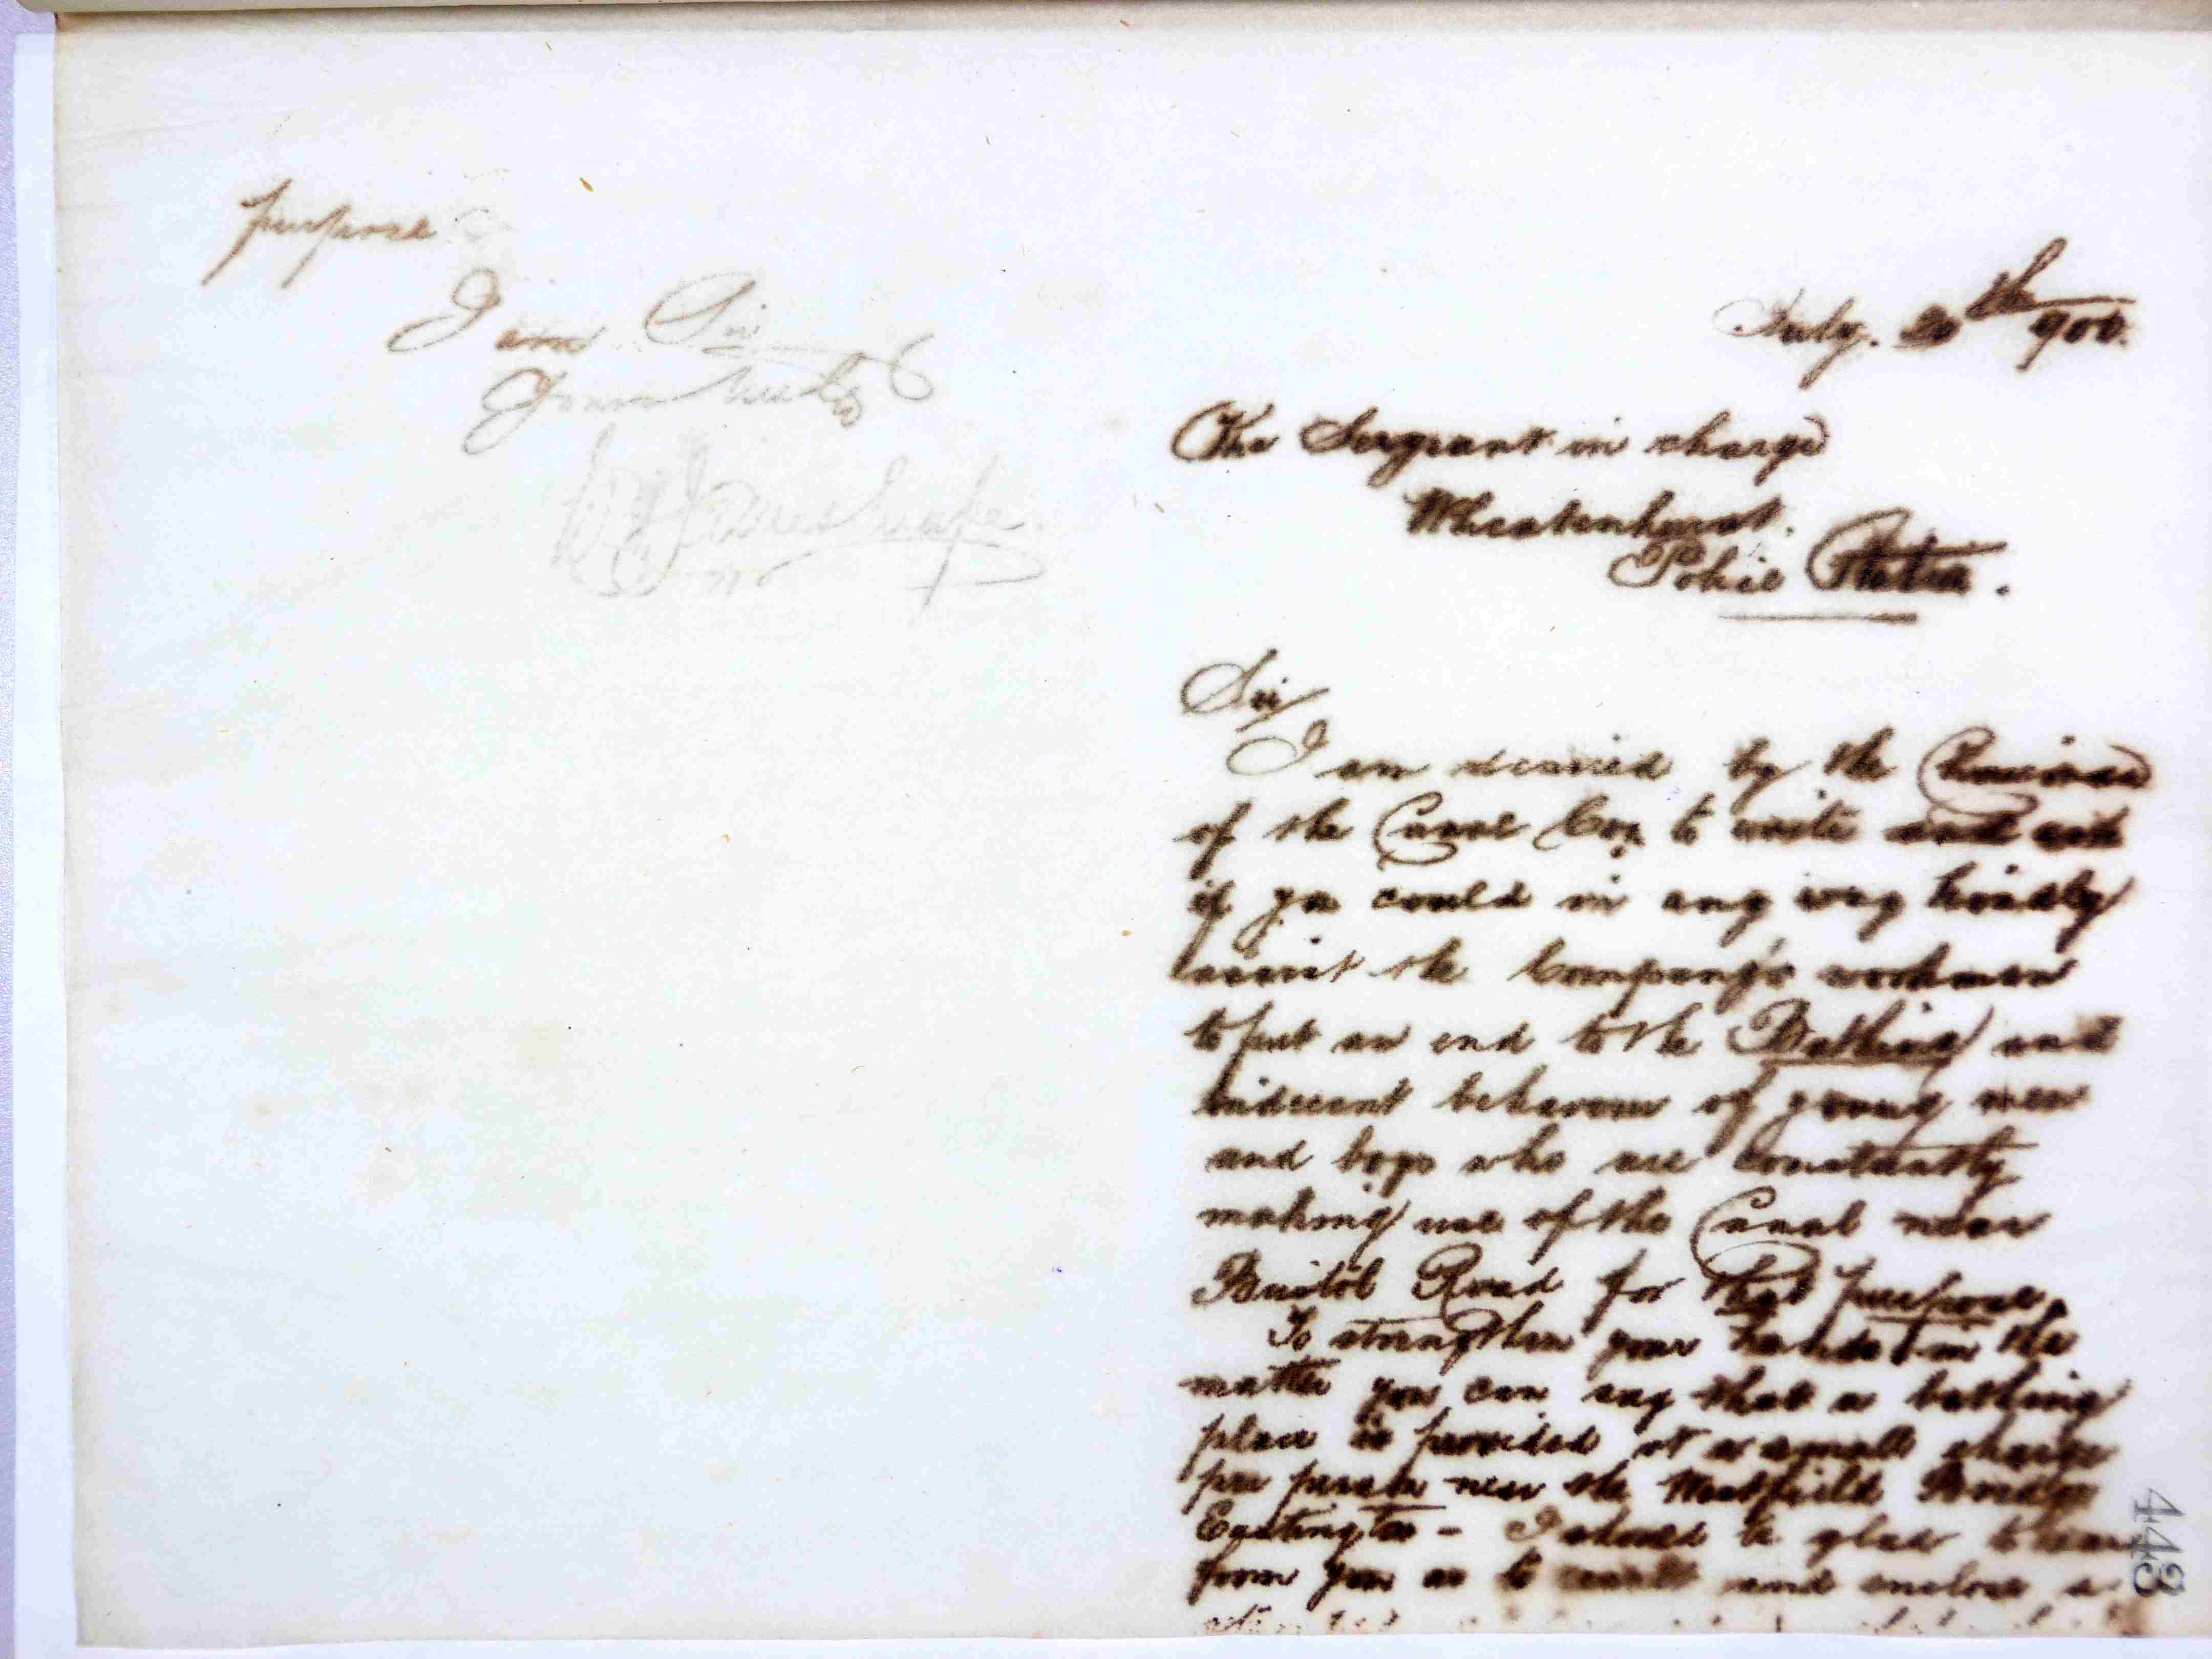 July. 20th 900.
The Sergeant in charge
Wheatenhurst.
Police Station.
Sir/
I am desired by the Chairman
of the Canal Coy to write and ask
if you could in any way kindly
assist the Company's workmen
to put an end to the Bathing and
indecent behavour of young men
and boys who are constantly
making use of the Canal near
Bristol Road for that purpose.
To strengthen your hands in the
matter you can say that a bathing
place is provided at a small charge
per person near the Westfield Bridge
Eastington - I should be glad to hear
from you as to result and enclose a
purpose
I am Sir
Yours truly
443